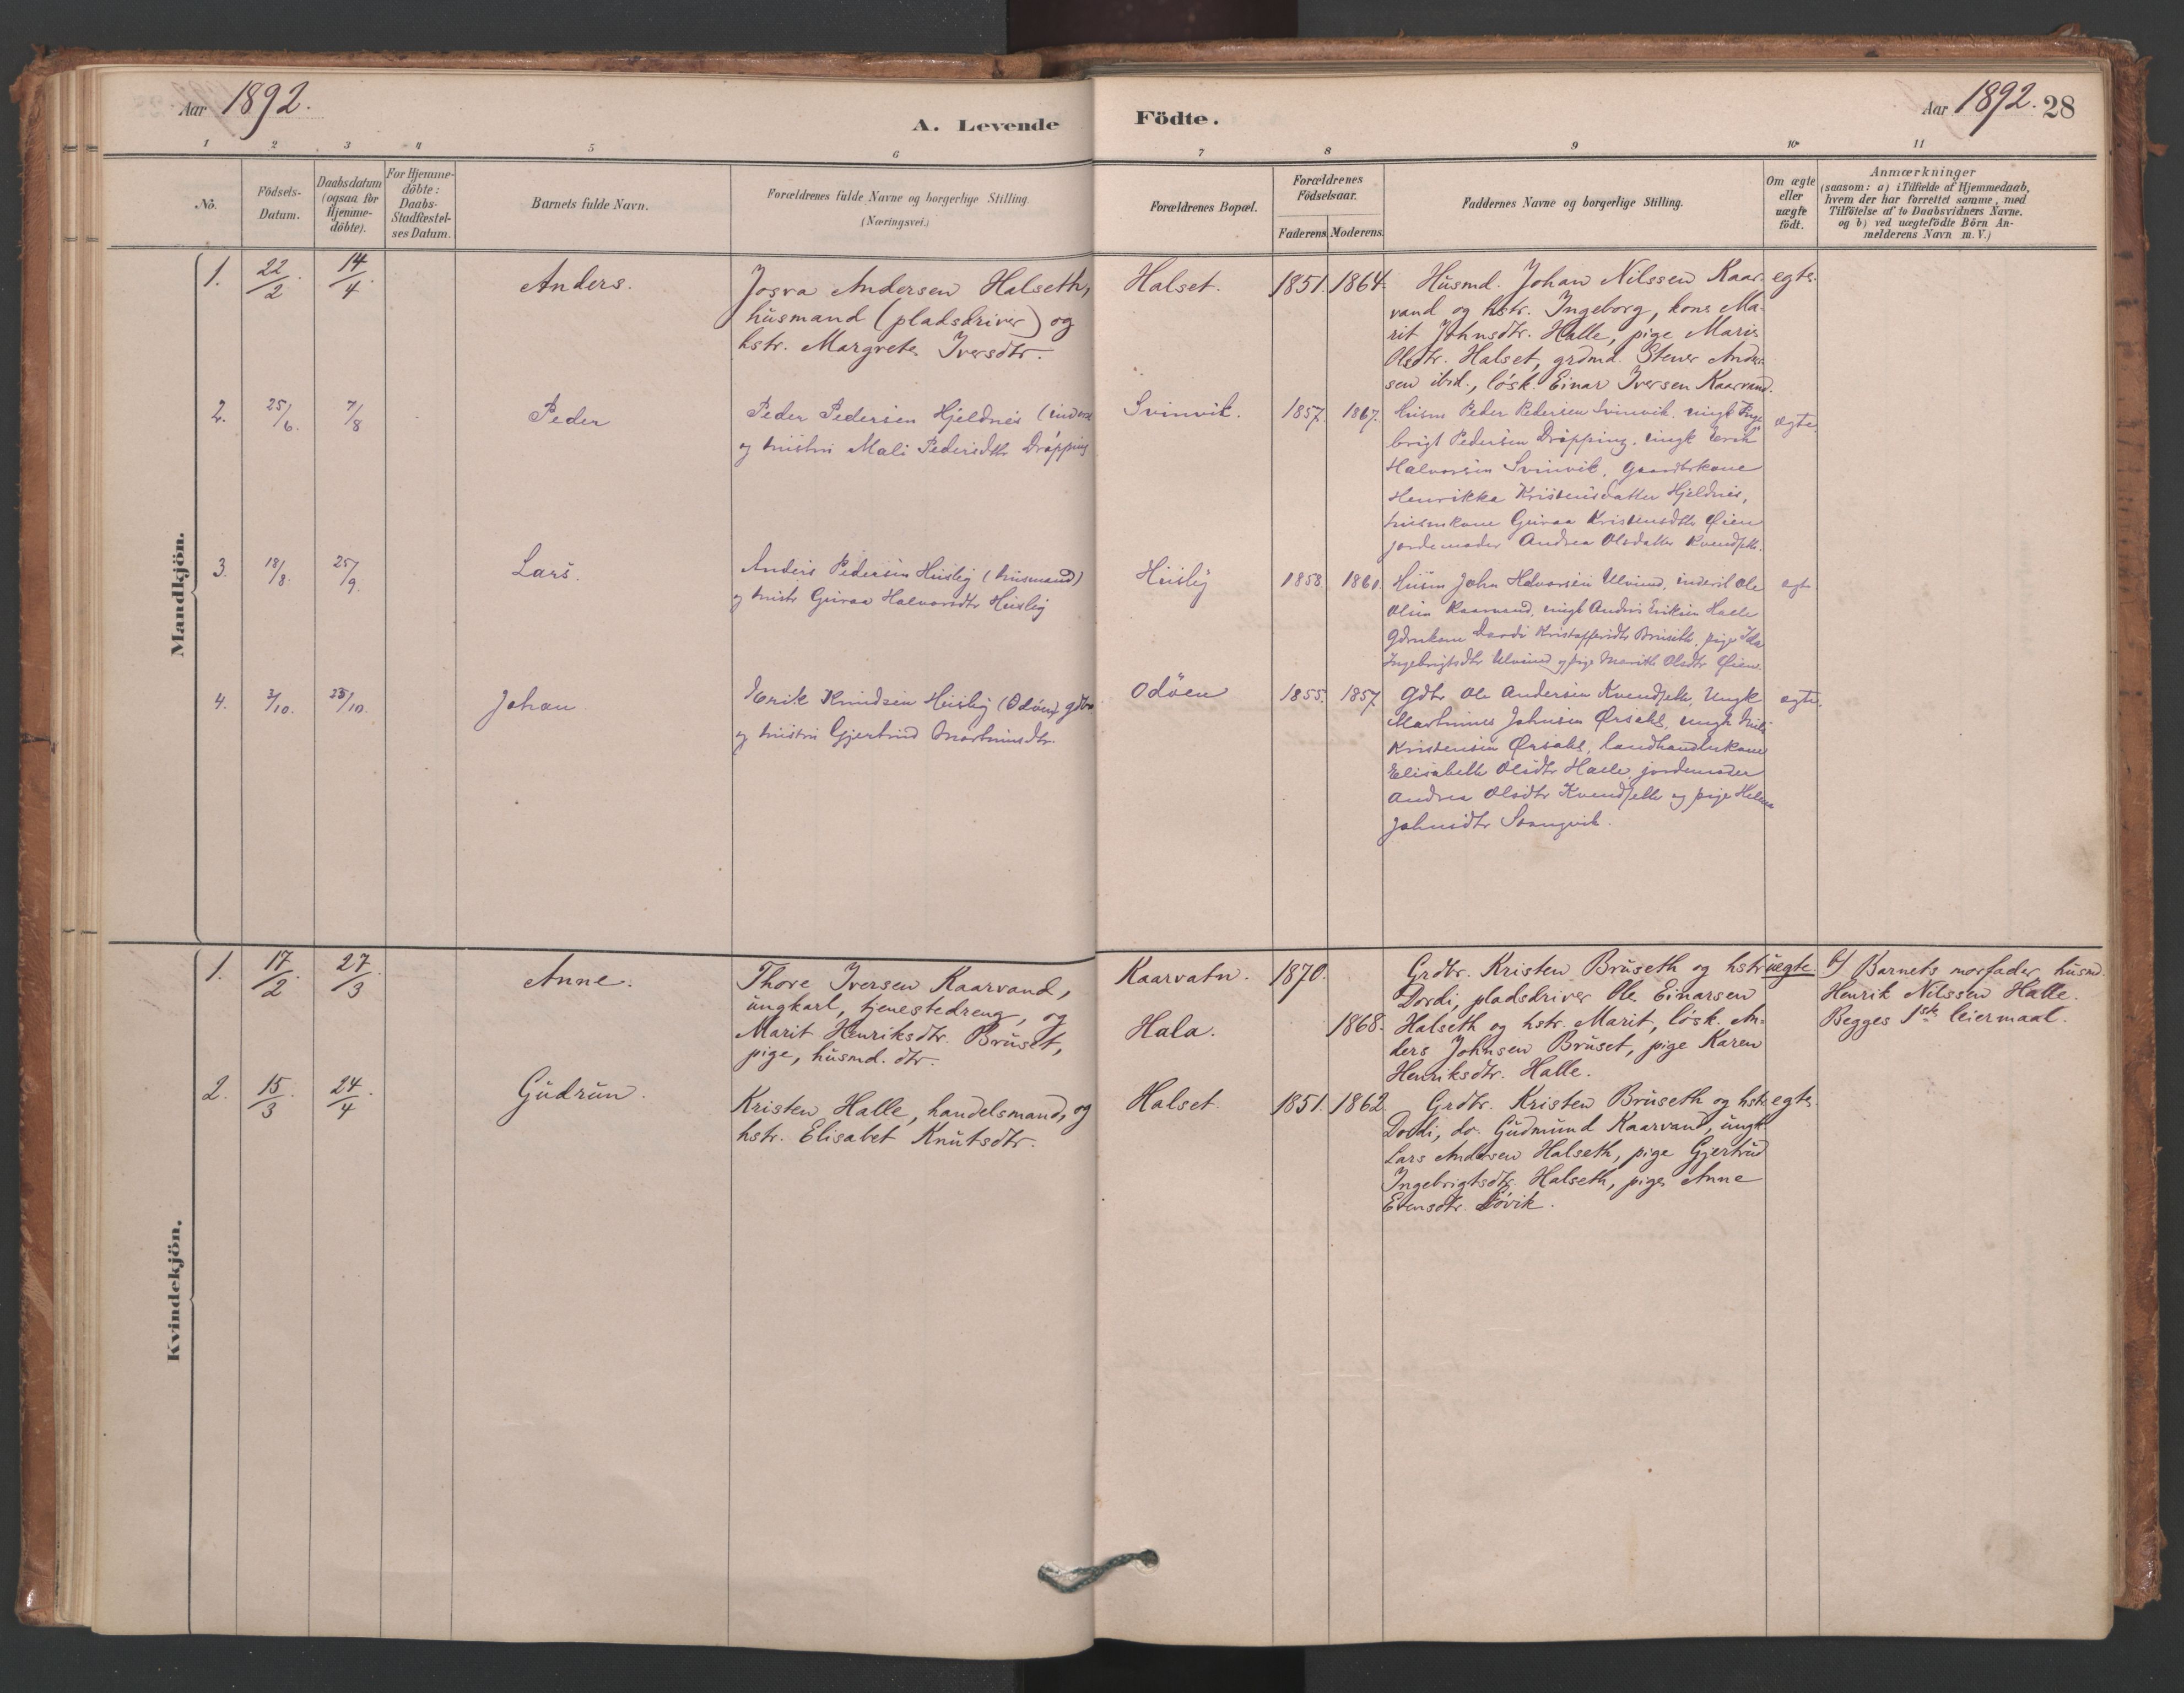 Aar 1892.
A. Levende Födte.
Aar 1892. 28
1 2 3 4 5 6 7 8 9 10 11
No.
Födsels-
Datum.
Daabsdatum
(ogsaa for
Hjemme-
döbte).
For Hjemme-
döbte:
Daabs-
Stadfæstel-
ses Datum.
Barnets fulde Navn.
Forældrenes fulde Navne og borgerlige Stilling
(Næringsvei.)
Forældrenes Bopæl.
Forældrenes
Födselsaar.
Faderens. Moderens.
Faddernes Navne og borgerlige Stilling.
Om ægte
eller
uægte
födt.
Anmærkninger
(saasom: a) i Tilfælde af Hjemmedaab,
hvem der har forrettet samme, med
Tilföielse af to Daabsvidners Navne.
og b) ved uægtefödte Börn An-
melderens Navn m. V.)
Mandkjön.
1. 22/2. 14/4. Anders.
Josva Andersen Halseth,
husmand (pladsdriver) og
hstr. Margrete Iversdtr.
Halset. 1851. 1864.
Husmd. Johan Nilssen Kaar-
vand og hstr. Ingeborg, kone Ma-
rit Johnsdtr. Halle, pige Marie
Olsdtr. Halset, grdmd. Stener Ander-
sen ibid., lösk. Einar Iversen Kaarvand.
egte.
2. 25/6. 7/8 Peder
Peder Pedersen Hjeldnes
og hustru Mali Pedersdtr Dröpping
Svinvik. 1857. 1867.
Husm Peder Pedersen Svinvik, ungk Inge-
brigt Pedersen Dröpping, ungk Erik
Halvorsen Svinvik, gaardbrkone
Henrikka Kristensdatter Hjeldnes,
husmkone Guroa Kristensdtr Øien
jordemoder Andrea Olsdatter Kvendsetb.
ægte.
3. 18/8. 25/9. Lars.
Anders Pedersen Husby (husmand)
og hustr Guroa Halvorsdtr Husby
Husby 1858. 1861.
Husm John Halvorsen Ulvund, inderst Ole
Olsen Kaarvand, ungk Anders Eriksen Halle
Gdmkone Dordi Kristoffersdtr Bruseth, pige Ida
Ingebrigtsdtr Ulvund og pige Marith Olsdtr Øien.
egte
4. 3/10. 23/10. Johan
Erik Knudsen Husby (Odöen) gdbr
og hustru Gjertrud Martinusdtr.
Odöen 1855. 1857
Gdbr Ole Andersen Kvendsetb, Ungk
Martinus Johnsen Ørsahl, ungk Nils
Kristensen Ørsahl, landhandlerkone
Elisabeth Olsdtr Halle, jordemoder
Andrea Olsdtr Kvendsetb og pige Helene
Johnsdtr Stangvik.
egte.
Kvindekjön.
1. 17/2. 27/3. Anne.
Thore Iversen Kaarvand,
ungkarl, tjenestedreng, og
Marit Henriksdtr. Bruset,
pige, husmd. dtr.
Kaarvatn. 1870.
Hala. 1868.
Grdbr. Kristen Bruseth og hstr
Dordi, pladsdriver Ole Einarsen
Halseth og hstr. Marit, lösk. An-
ders Johnsen Bruset, pige Karen
Henriksdtr. Halle.
uegte.
b) Barnets morfader, husmd.
Henrik Nilssen Halle.
Begges 1ste leiermaal.
2. 15/3. 24/4. Gudrun.
Kristen Halle, handelsmand, og
hstr. Elisabet Knutsdtr.
Halset 1851. 1862.
Grdbr. Kristen Bruseth og hstr.
Dordi, do. Gudmund Kaarvand, ungk.
Lars Andersen Halseth, pige Gjertrud
Ingebrigtsdtr. Halseth, pige Anne
Evensdtr. Lövik.
egte.